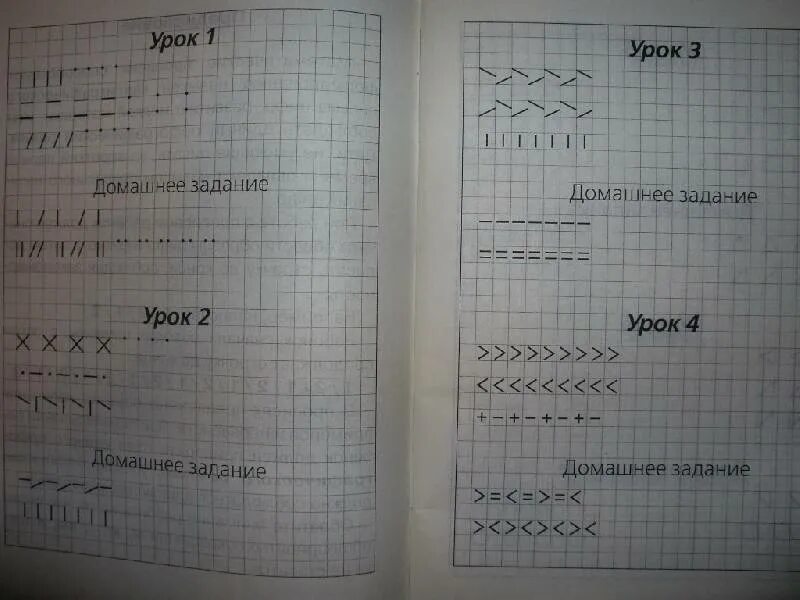 Урок 1
| | | | . . . .
– – – – . . .
– – – – . . .
/ / / / . . . .
Домашнее задание
| / | / |
|| // || // || .. .. .. ..
Урок 2
× × × × . . . .
. – . – . – .
\ | \ | \ | \
Домашнее задание
| | | | | | |
Урок 3
| | | | | | |
Домашнее задание
– – – – – – –
= = = = = = =
Урок 4
> > > > > > > > >
< < < < < < < < <
+ – + – + – + –
Домашнее задание
> = < = > = <
> < > < > < > <